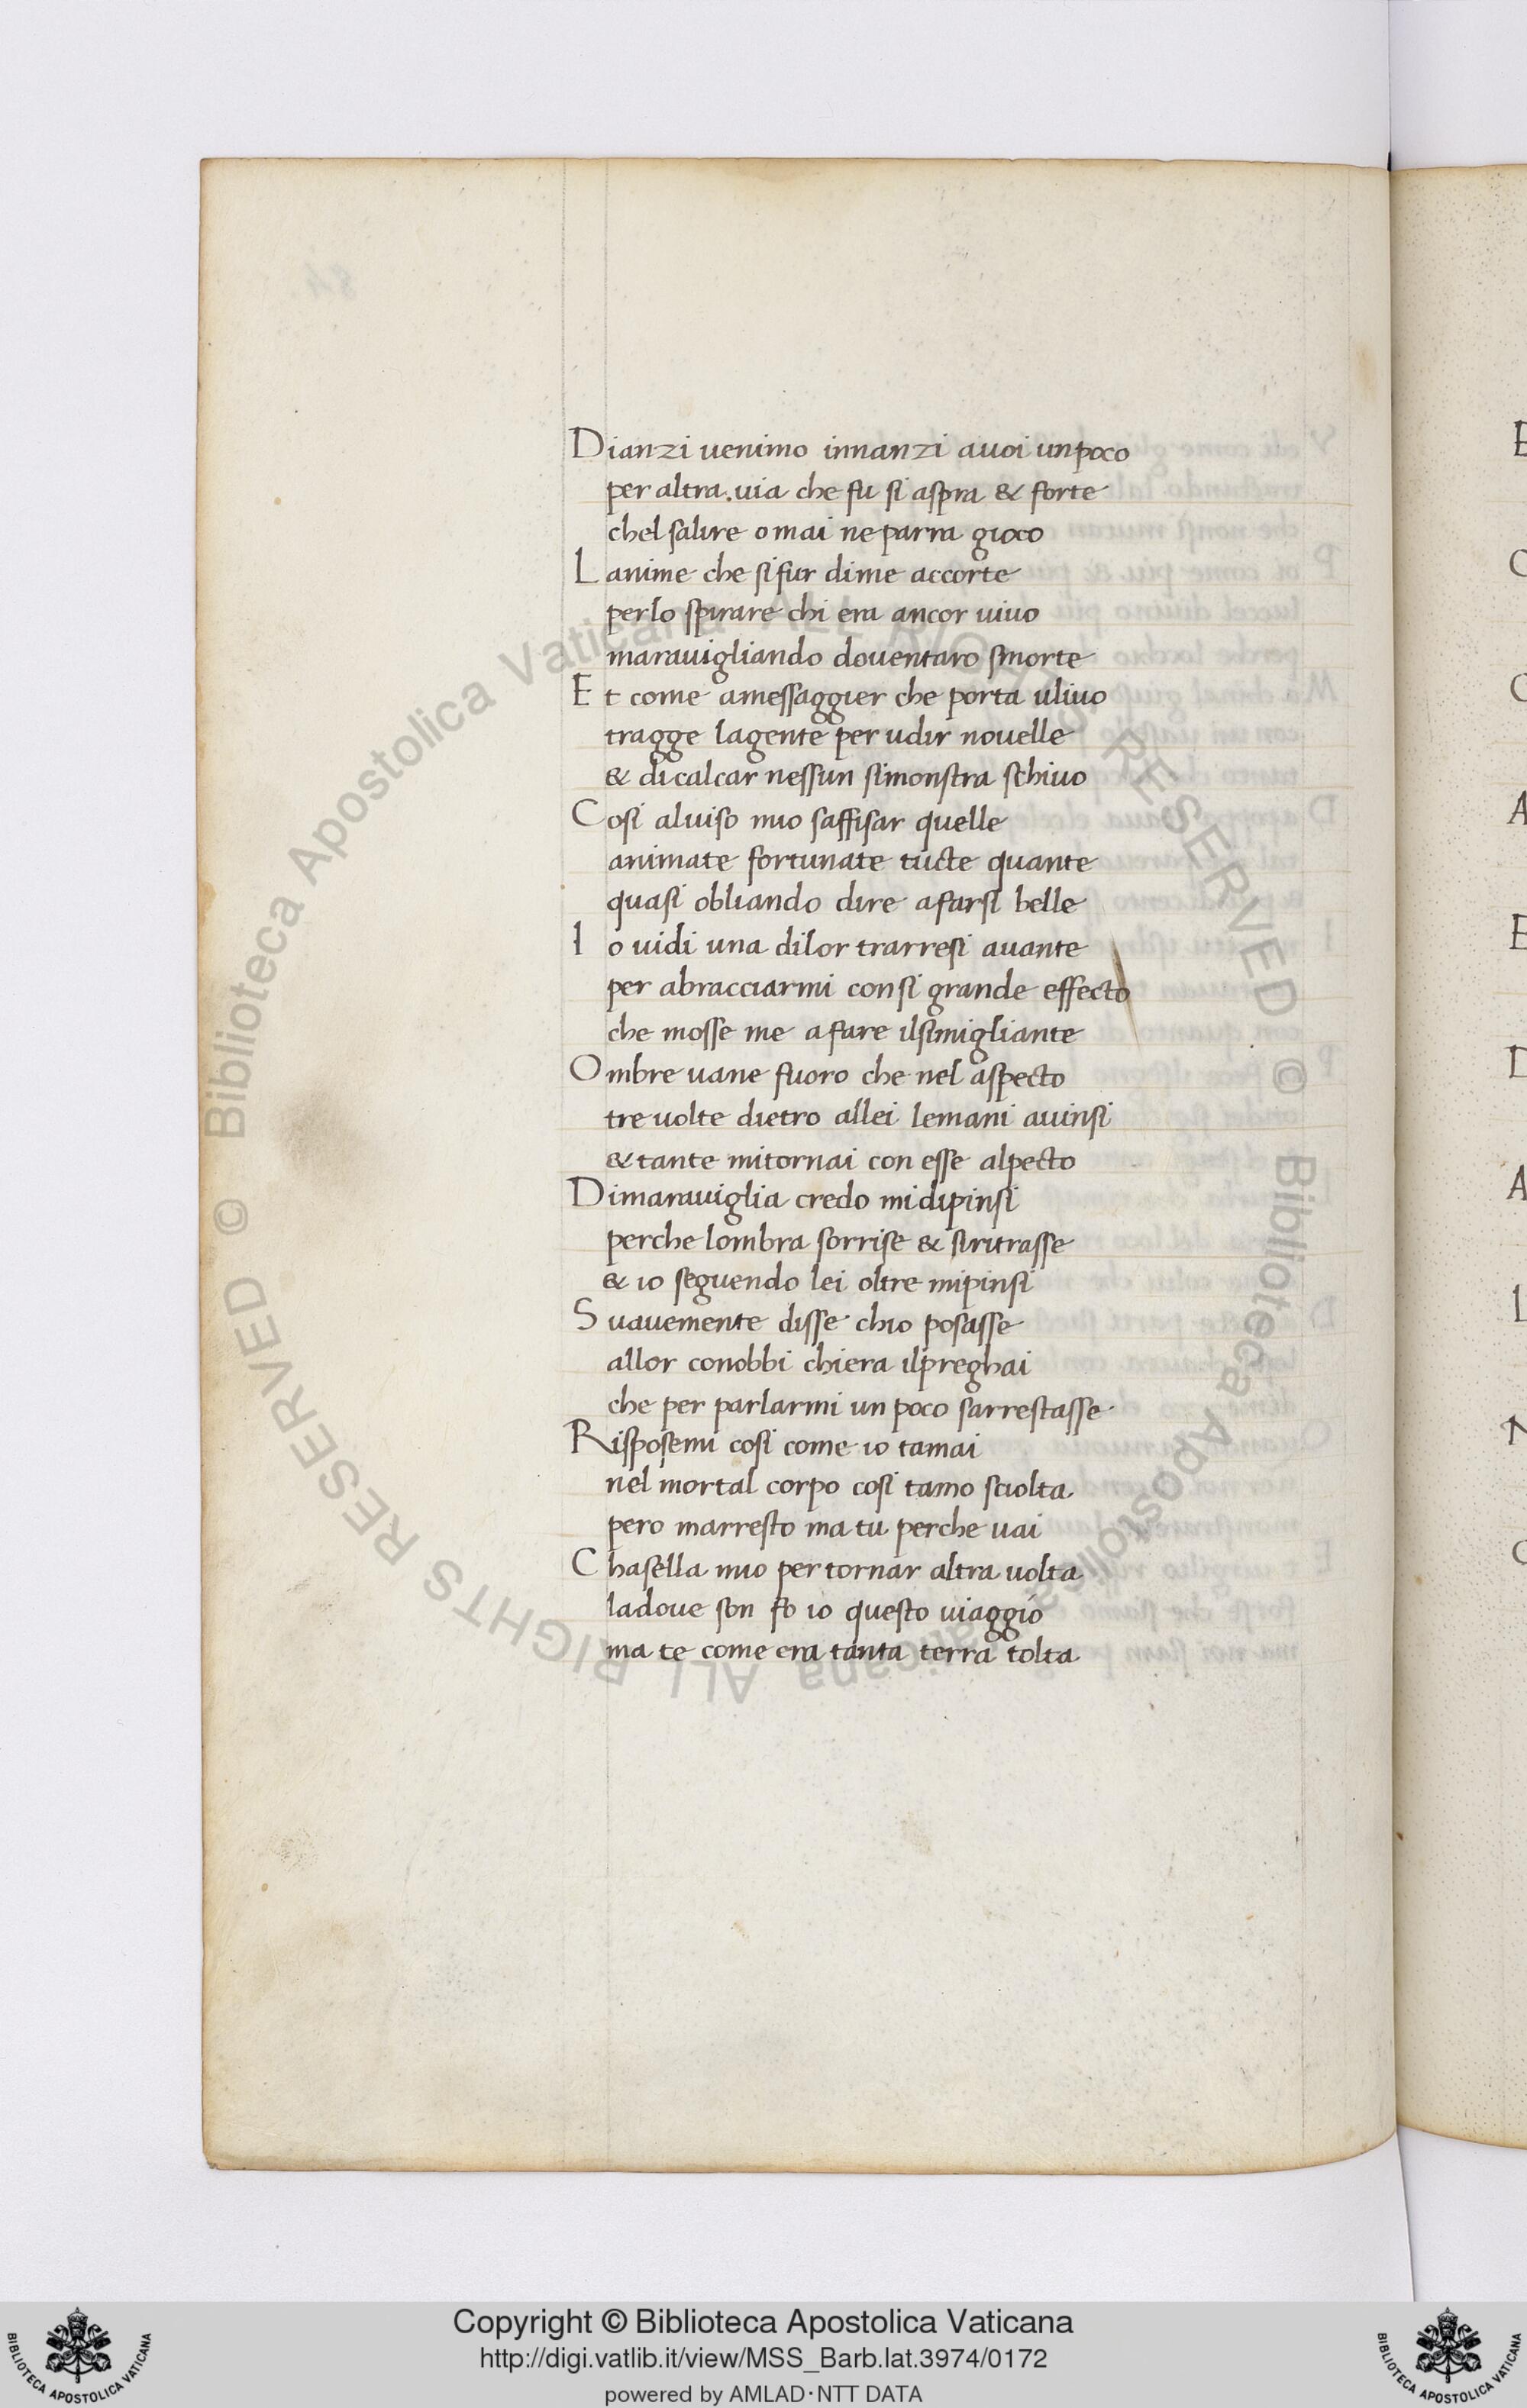 Dianzi uenimo innanzi auoi unpoco
per altra.uia che fu si aspra & forte
chel salire omai neparra gioco
Lanime che sifur dime accorte
perlo spirare chi era ancor uiuo
marauigliando douentaro smorte
Et come amessaggier che porta uliuo
tragge lagente per udir nouelle
& dicalcar nessun simonstra schiuo
Cosi aluiso mio saffisar quelle
animate fortunate tucte quante
quasi obliando dire afarsi belle
Io uidi una dilor trarresi auante
per abracciarmi consi grande effecto
che mosse me afare ilsimigliante
Ombre uane fuoro che nel aspecto
tre uolte dietro allei lemani auinsi
& tante mitornai con esse alpecto
Dimarauiglia credo midipinsi
perche lombra sorrise & siritrasse
& io seguendo lei oltre mipinsi
Suauemente disse chio posasse
allor conobbi chiera ilpreghai
che per parlarmi un poco sarrestasse
Risposemi cosi come io tamai
nel mortal corpo cosi tamo sciolta
pero marresto ma tu perche uai
Chasella mio per tornar altra uolta
ladoue son fo io questo uiaggio
ma te come era tanta terra tolta
© Biblioteca Apostolica Vaticana ALL RIGHTS RESERVED © Biblioteca Apostolica Vaticana ALL RIGHTS RESERVED
Copyright © Biblioteca Apostolica Vaticana
http://digi.vatlib.it/view/MSS_Barb.lat.3974/0172
powered by AMLAD·NTT DATA
BIBLIOTECA APOSTOLICA VATICANA
BIBLIOTECA APOSTOLICA VATICANA